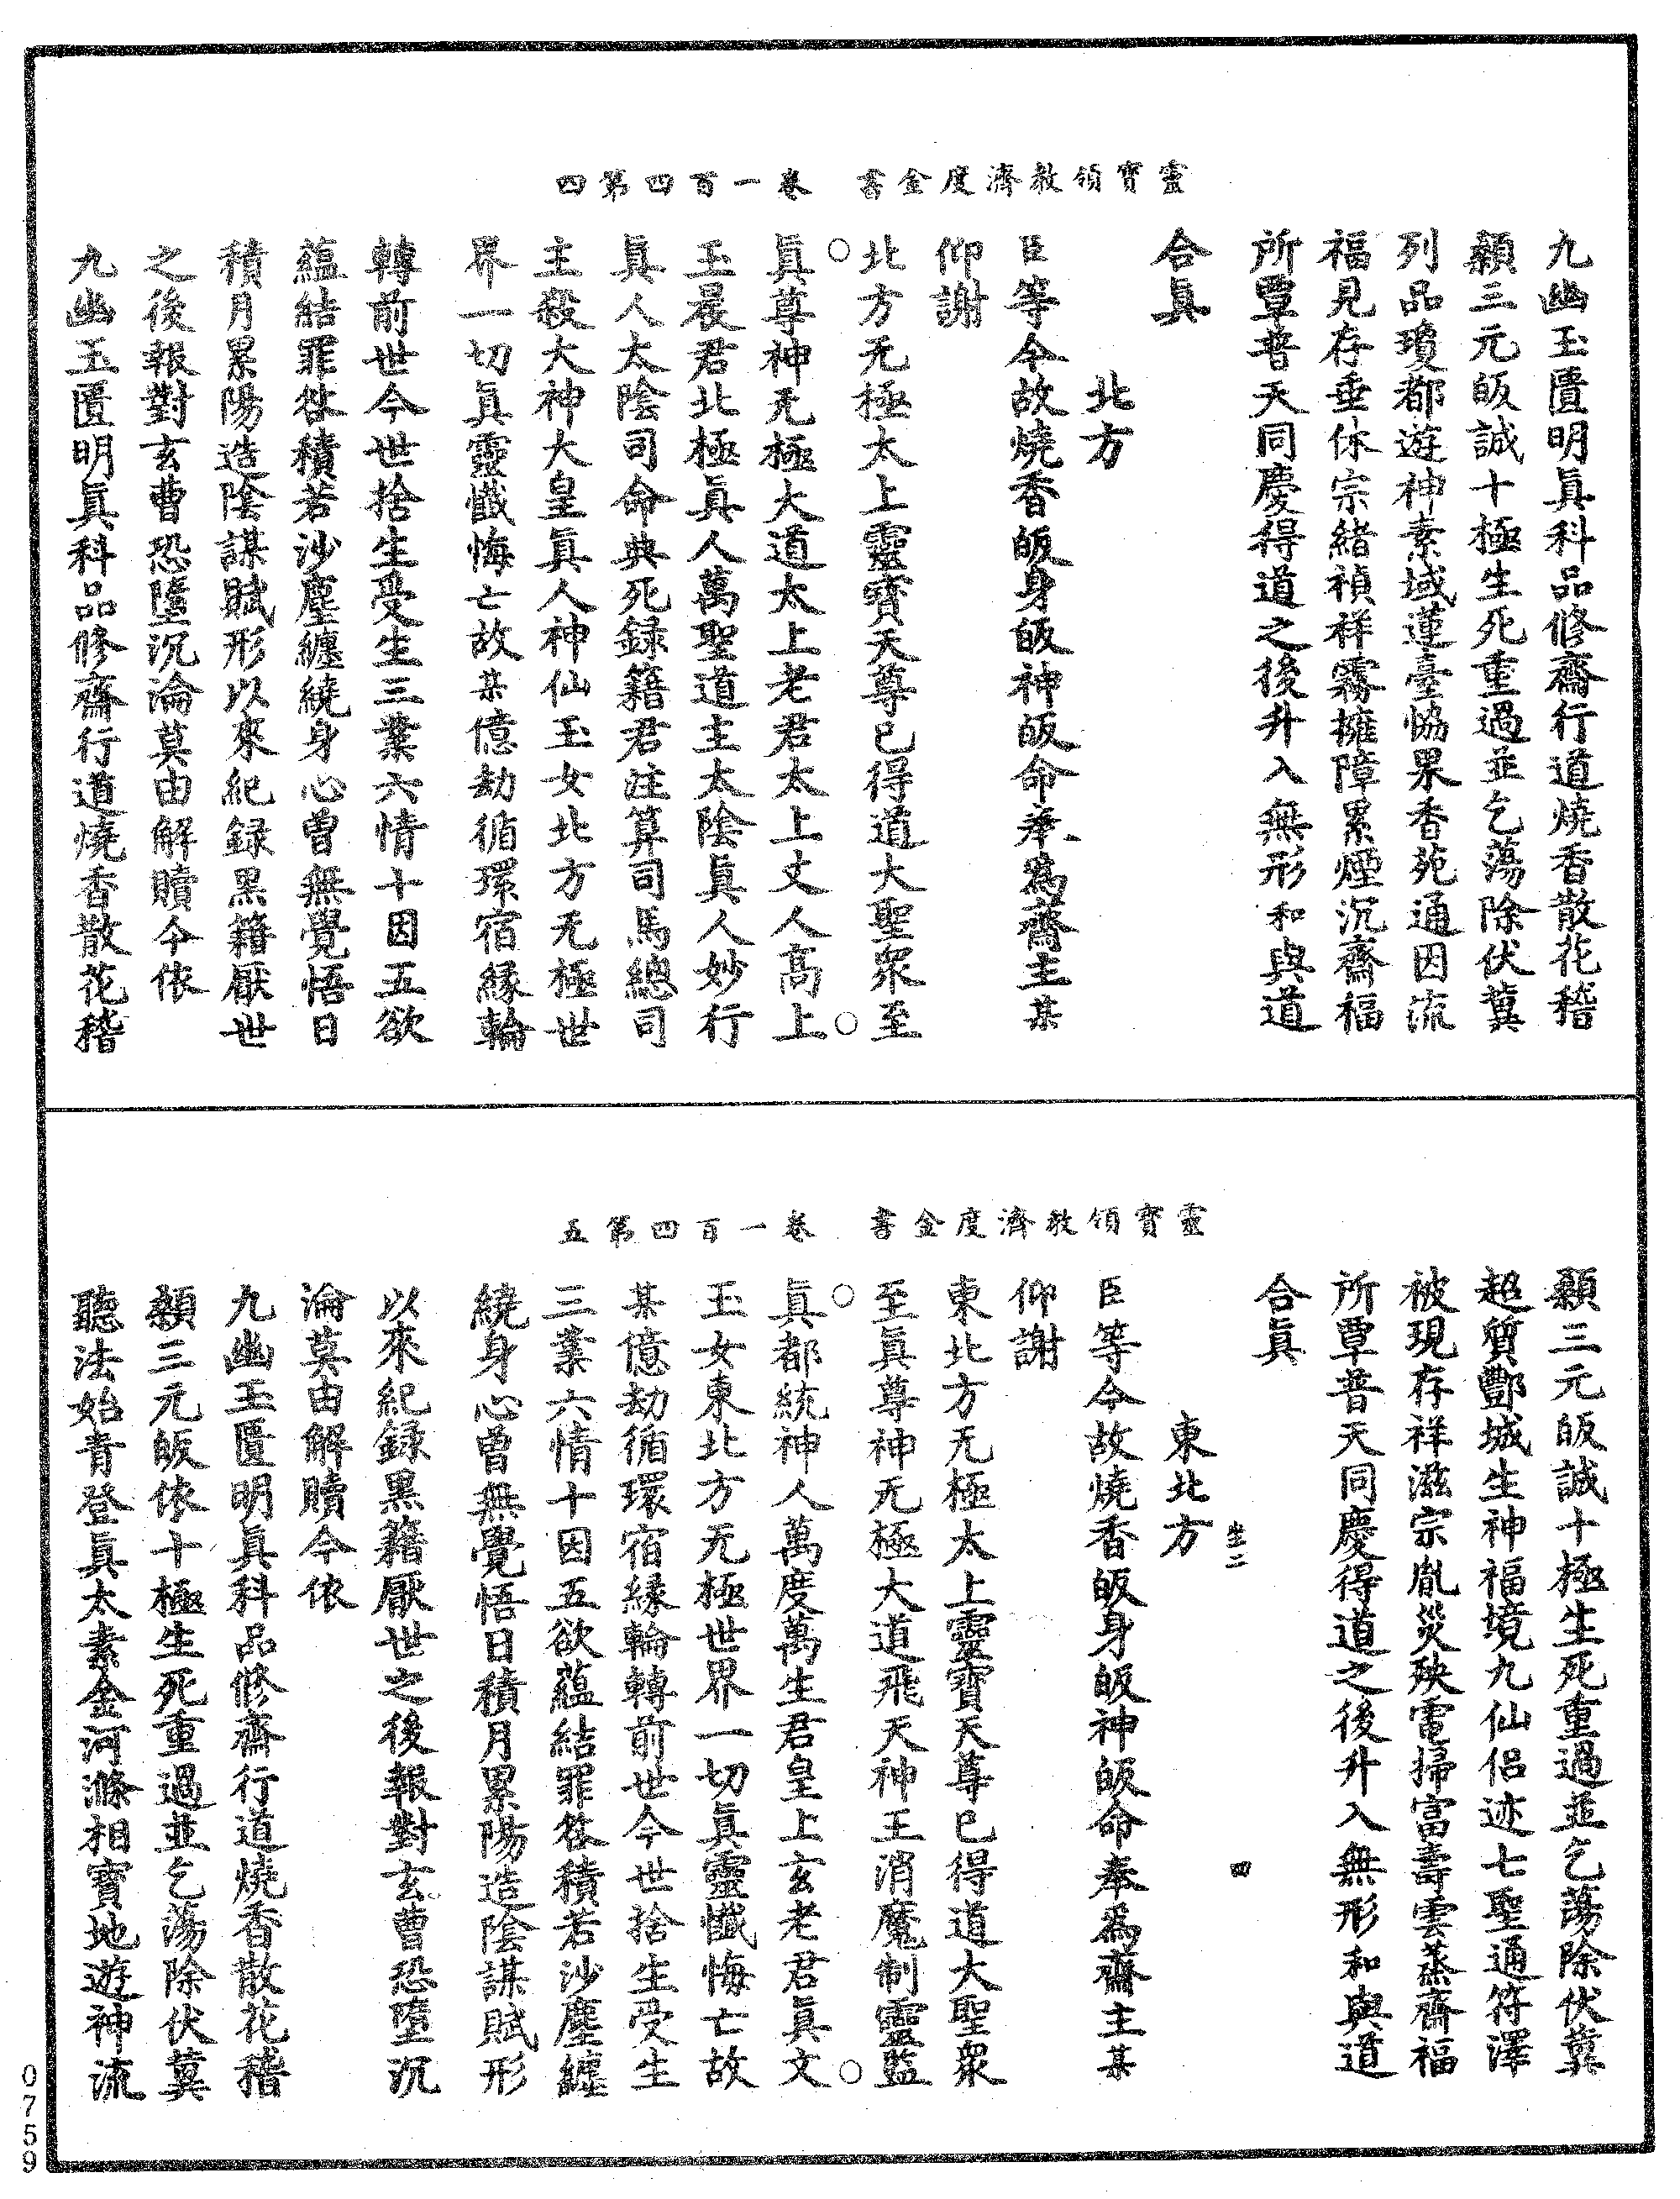 靈寶領教濟度金書　卷一百四第四
九幽玉匱明眞科品修齋行道燒香散花稽
顙三元皈誠十極生死重過並乞蕩除伏冀
列品瓊都遊神素域蓮臺恊果香苑通因流
福見存垂休宗緒禎祥霧擁障累煙沉齋福
所覃普天同慶得道之後升入無形和與道
合眞
北方
臣等今故燒香皈身皈神皈命奉爲齋主某
仰謝
北方无極太上靈寶天尊已得道大聖衆至
眞尊神无極大道太上老君太上丈人高上
玉晨君北極眞人萬聖道主太陰眞人妙行
眞人太陰司命典死録籍君注算司馬總司
主殺大神大皇眞人神仙玉女北方无極世
界一切眞靈懺悔亡故某億劫循環宿縁輪
轉前世今世捨生受生三業六情十因五欲
蘊結罪咎積若沙塵纏繞身心曾無覺悟日
積月累陽造陰謀賦形以來紀録黒籍厭世
之後報對玄曹恐墮沉淪莫由解贖今依
九幽玉匱明眞科品修齋行道燒香散花稽
靈寶領教濟度金書　卷一百四第五
顙三元皈誠十極生死重過並乞蕩除伏冀
超質酆城生神福境九仙侣迹七聖通符澤
被現存祥滋宗胤災殃電掃富壽雲蒸齋福
所覃普天同慶得道之後升入無形和與道
合眞
生二　四
東北方
臣等今故燒香皈身皈神皈命奉爲齋主某
仰謝
東北方无極太上靈寶天尊已得道大聖衆
至眞尊神无極大道飛天神王消魔制靈監
眞都統神人萬度萬生君皇上玄老君眞文
玉女東北方无極世界一切眞靈懺悔亡故
某億劫循環宿縁輪轉前世今世捨生受生
三業六情十因五欲蘊結罪咎積若沙塵纏
繞身心曾無覺悟日積月累陽造陰謀賦形
以來紀録黒籍厭世之後報對玄曹恐墮沉
淪莫由解贖今依
九幽玉匱明眞科品修齋行道燒香散花稽
顙三元皈依十極生死重過並乞蕩除伏冀
聽法始青登眞太素金河滌相寳地遊神流
0759